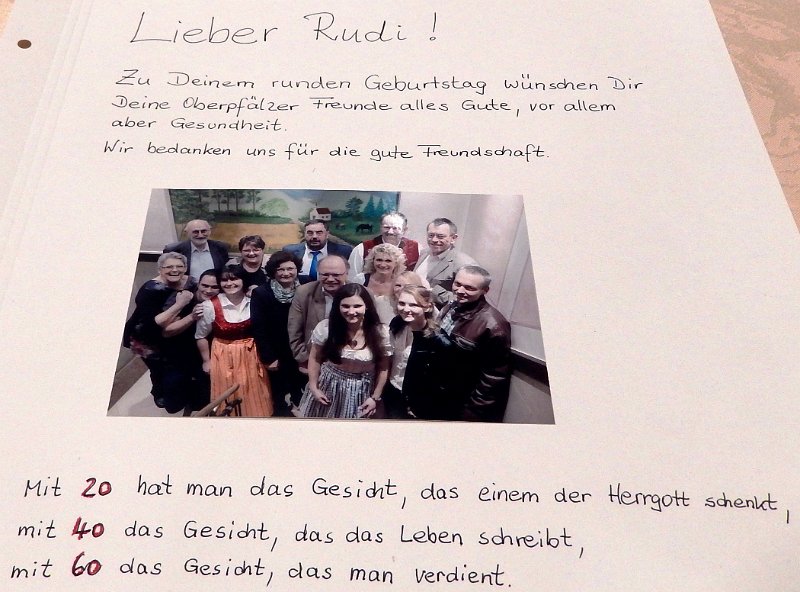 Lieber Rudi!
Zu Deinem runden Geburtstag wünschen Dir
Deine Oberpfälzer Freunde alles Gute, vor allem
aber Gesundheit.
Wir bedanken uns für die gute Freundschaft.
Mit 20 hat man das Gesicht, das einem der Herrgott schenkt,
mit 40 das Gesicht, das das Leben schreibt,
mit 60 das Gesicht, das man verdient.